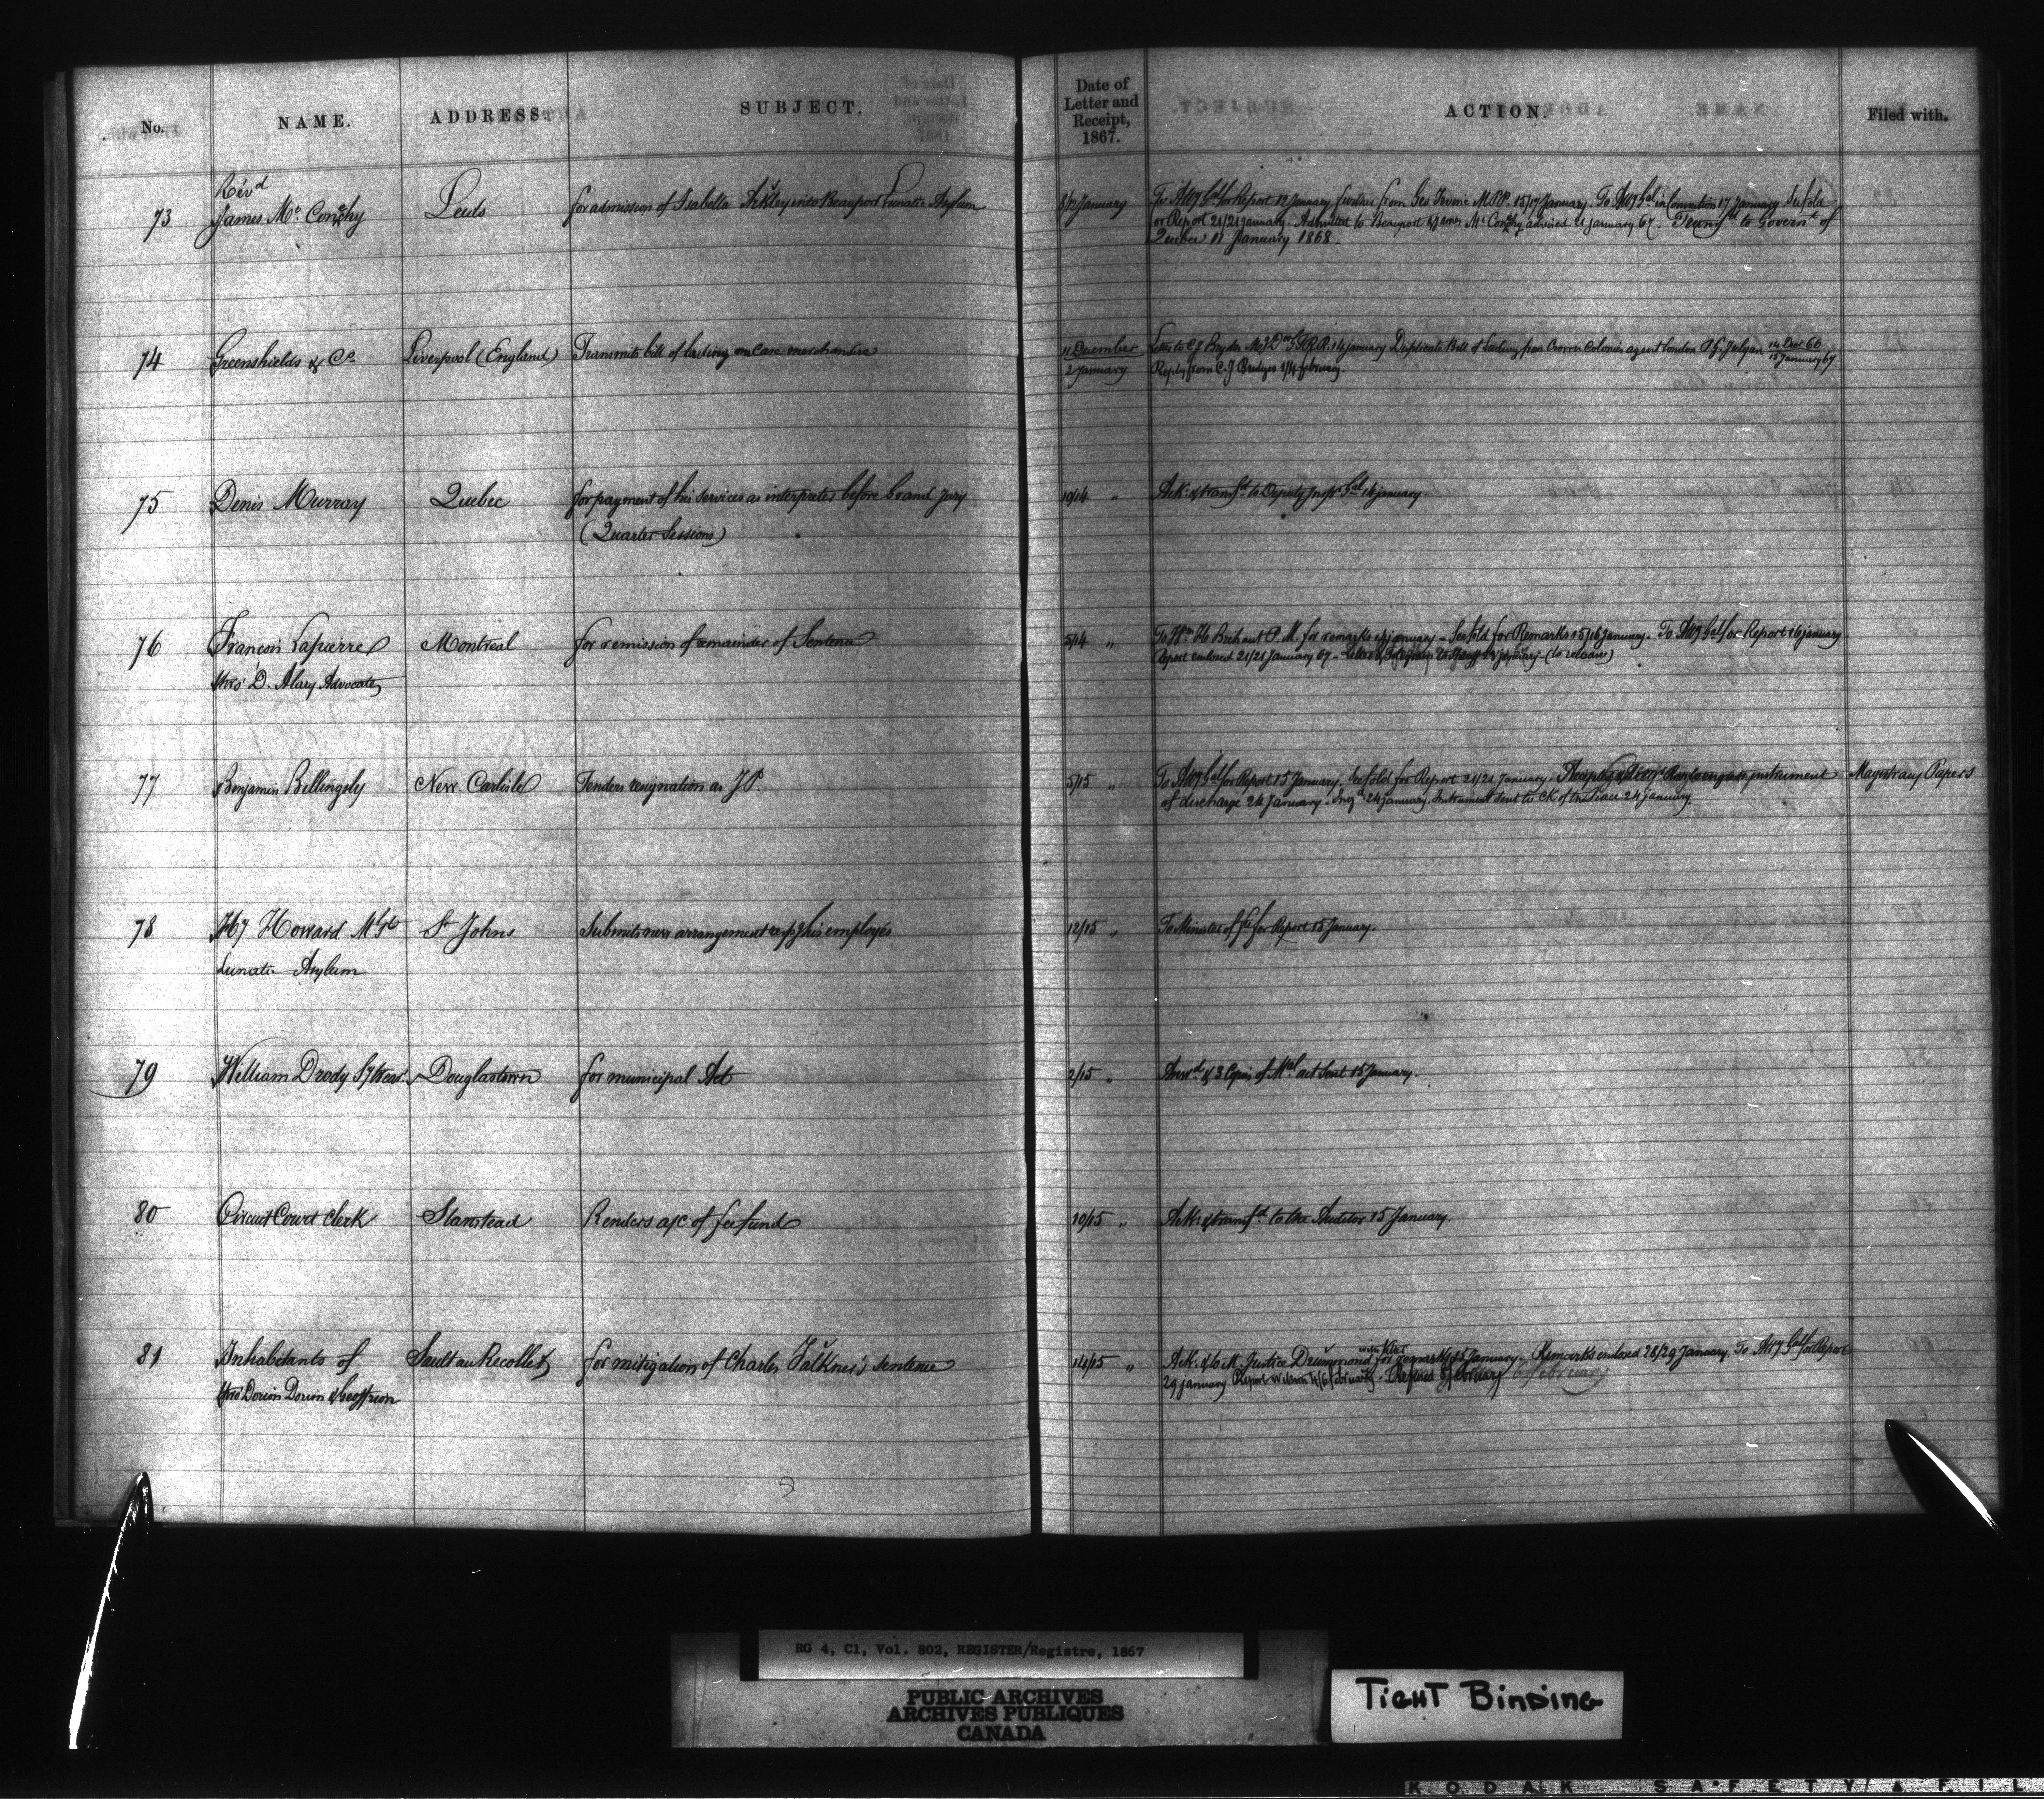 No.
NAME.
ADDRESS.
SUBJECT.
Date of
Letter and
Receipt,
1867.
ACTION.
Filed with.
73
Revd
James Mc Conchy
Leeds
for admission of Isabella Ackley into Beauport Lunatic Asylum
8/12 January
To Atty Gal for Report 12 January, further from Geo Irvine M.P.P. 15/17 January. To Atty Gal in Connection 17 January
for Report 21/21 January. Admitted to Beauport & James Mc Conchy advised January 67. Transfd to Governt of
Quebec 11 January 1868.
74
Greenshields & Co
Liverpool (England)
Transmits bill of lading on Case merchandise
11 December
2 January
Letter to C J Brydges G.T.R.R. 14 January Duplicate Bill of Lading from Crown Colonies agent London P. G. Julyan 14 Dec 66
15 January 67
Reply from C. J Bridges 1/4 February.
75
Denis Murray
Quebec
for payment of his services as interpreter before Grand Jury
(Quarter Sessions)
10/14 "
Ack: & transfd to Deputy Insp Gal 14 January.
76
Francois Lapierre
Montreal
for remission of remainder of Sentence
5/14 "
To Wm H. Brehaut P. M. for remarks 14 January. for Remarks 15/16 January. To Atty Gal for Report 16 January
Report enclosed 21/21 January 67. (to release)
thro' D. Alary Advocate
77
Benjamin Billingsly
New Carlisle
Tenders resignation as J P.
5/15 "
To Atty Gal for Report 15 January. for Report 21/21 January. instrument
of discharge 24 January. 24 January. Instrument sent to Ck of the Peace 24 January.
Magistracy Papers
78
Hy Howard
St Johns
Submits new arrangement his employés
12/15 "
To Minister of for Report 15 January.
Lunatic Asylum
79
William Drody Sy Treas.
Douglastown
for municipal Act
2/15 "
Answd & 3 Copies of Mal act sent 15 January.
80
Circuit Court Clerk
Stanstead
Renders a/c of fee fund
10/15 "
Ack: & transfd to the Auditor 15 January.
81
Inhabitants of
Sault au Recollet
for mitigation of Charles Falkner's sentence
14/15 "
Ack: & to M. Justice Drummond for remarks 15 January. Remarks enclosed 28/29 January. To Atty Gal for Report
29 January Report 4/6 February. Refused 6 February
thro' Dorion Dorion & Geoffrion
RG 4, C1, Vol. 802, REGISTER/Registre, 1867
PUBLIC ARCHIVES
ARCHIVES PUBLIQUES
CANADA
TIGHT BINDING
KODAK SAFETY FIL